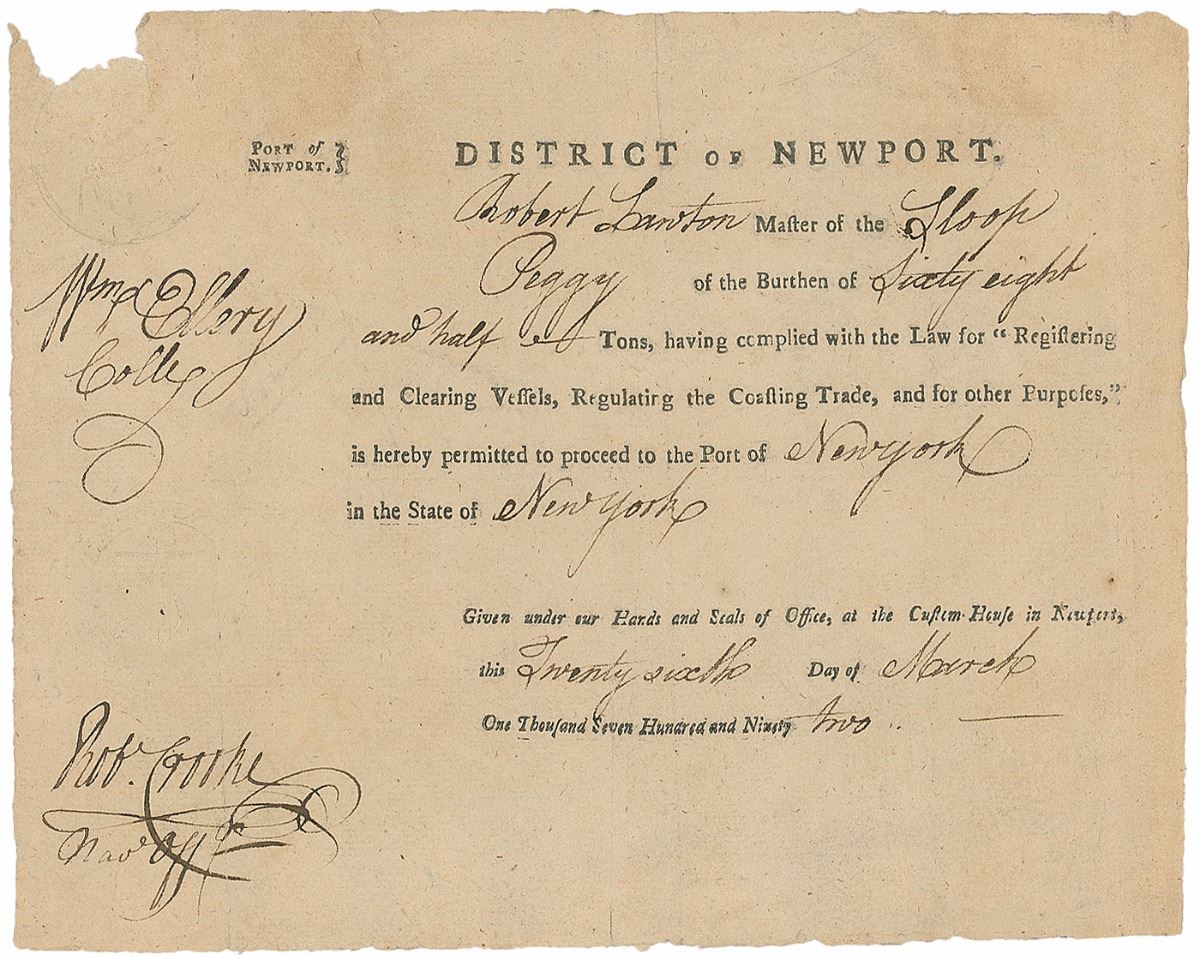 PORT of
NEWPORT.
DISTRICT OF NEWPORT.
Robert Lawton Maſter of the Sloop
Peggy of the Burthen of Sixty eight
and half Tons, having complied with the Law for “ Regiſtering
and Clearing Veſſels, Regulating the Coaſting Trade, and for other Purpoſes,”
is hereby permitted to proceed to the Port of Newyork
in the State of New york
Given under our Hands and Seals of Office, at the Cuſtom-Houſe in Newport,
this Twenty sixth Day of March
One Thouſand Seven Hundred and Ninety two
Wm Ellery
Colle
Robt. Crooke
Navl Offr